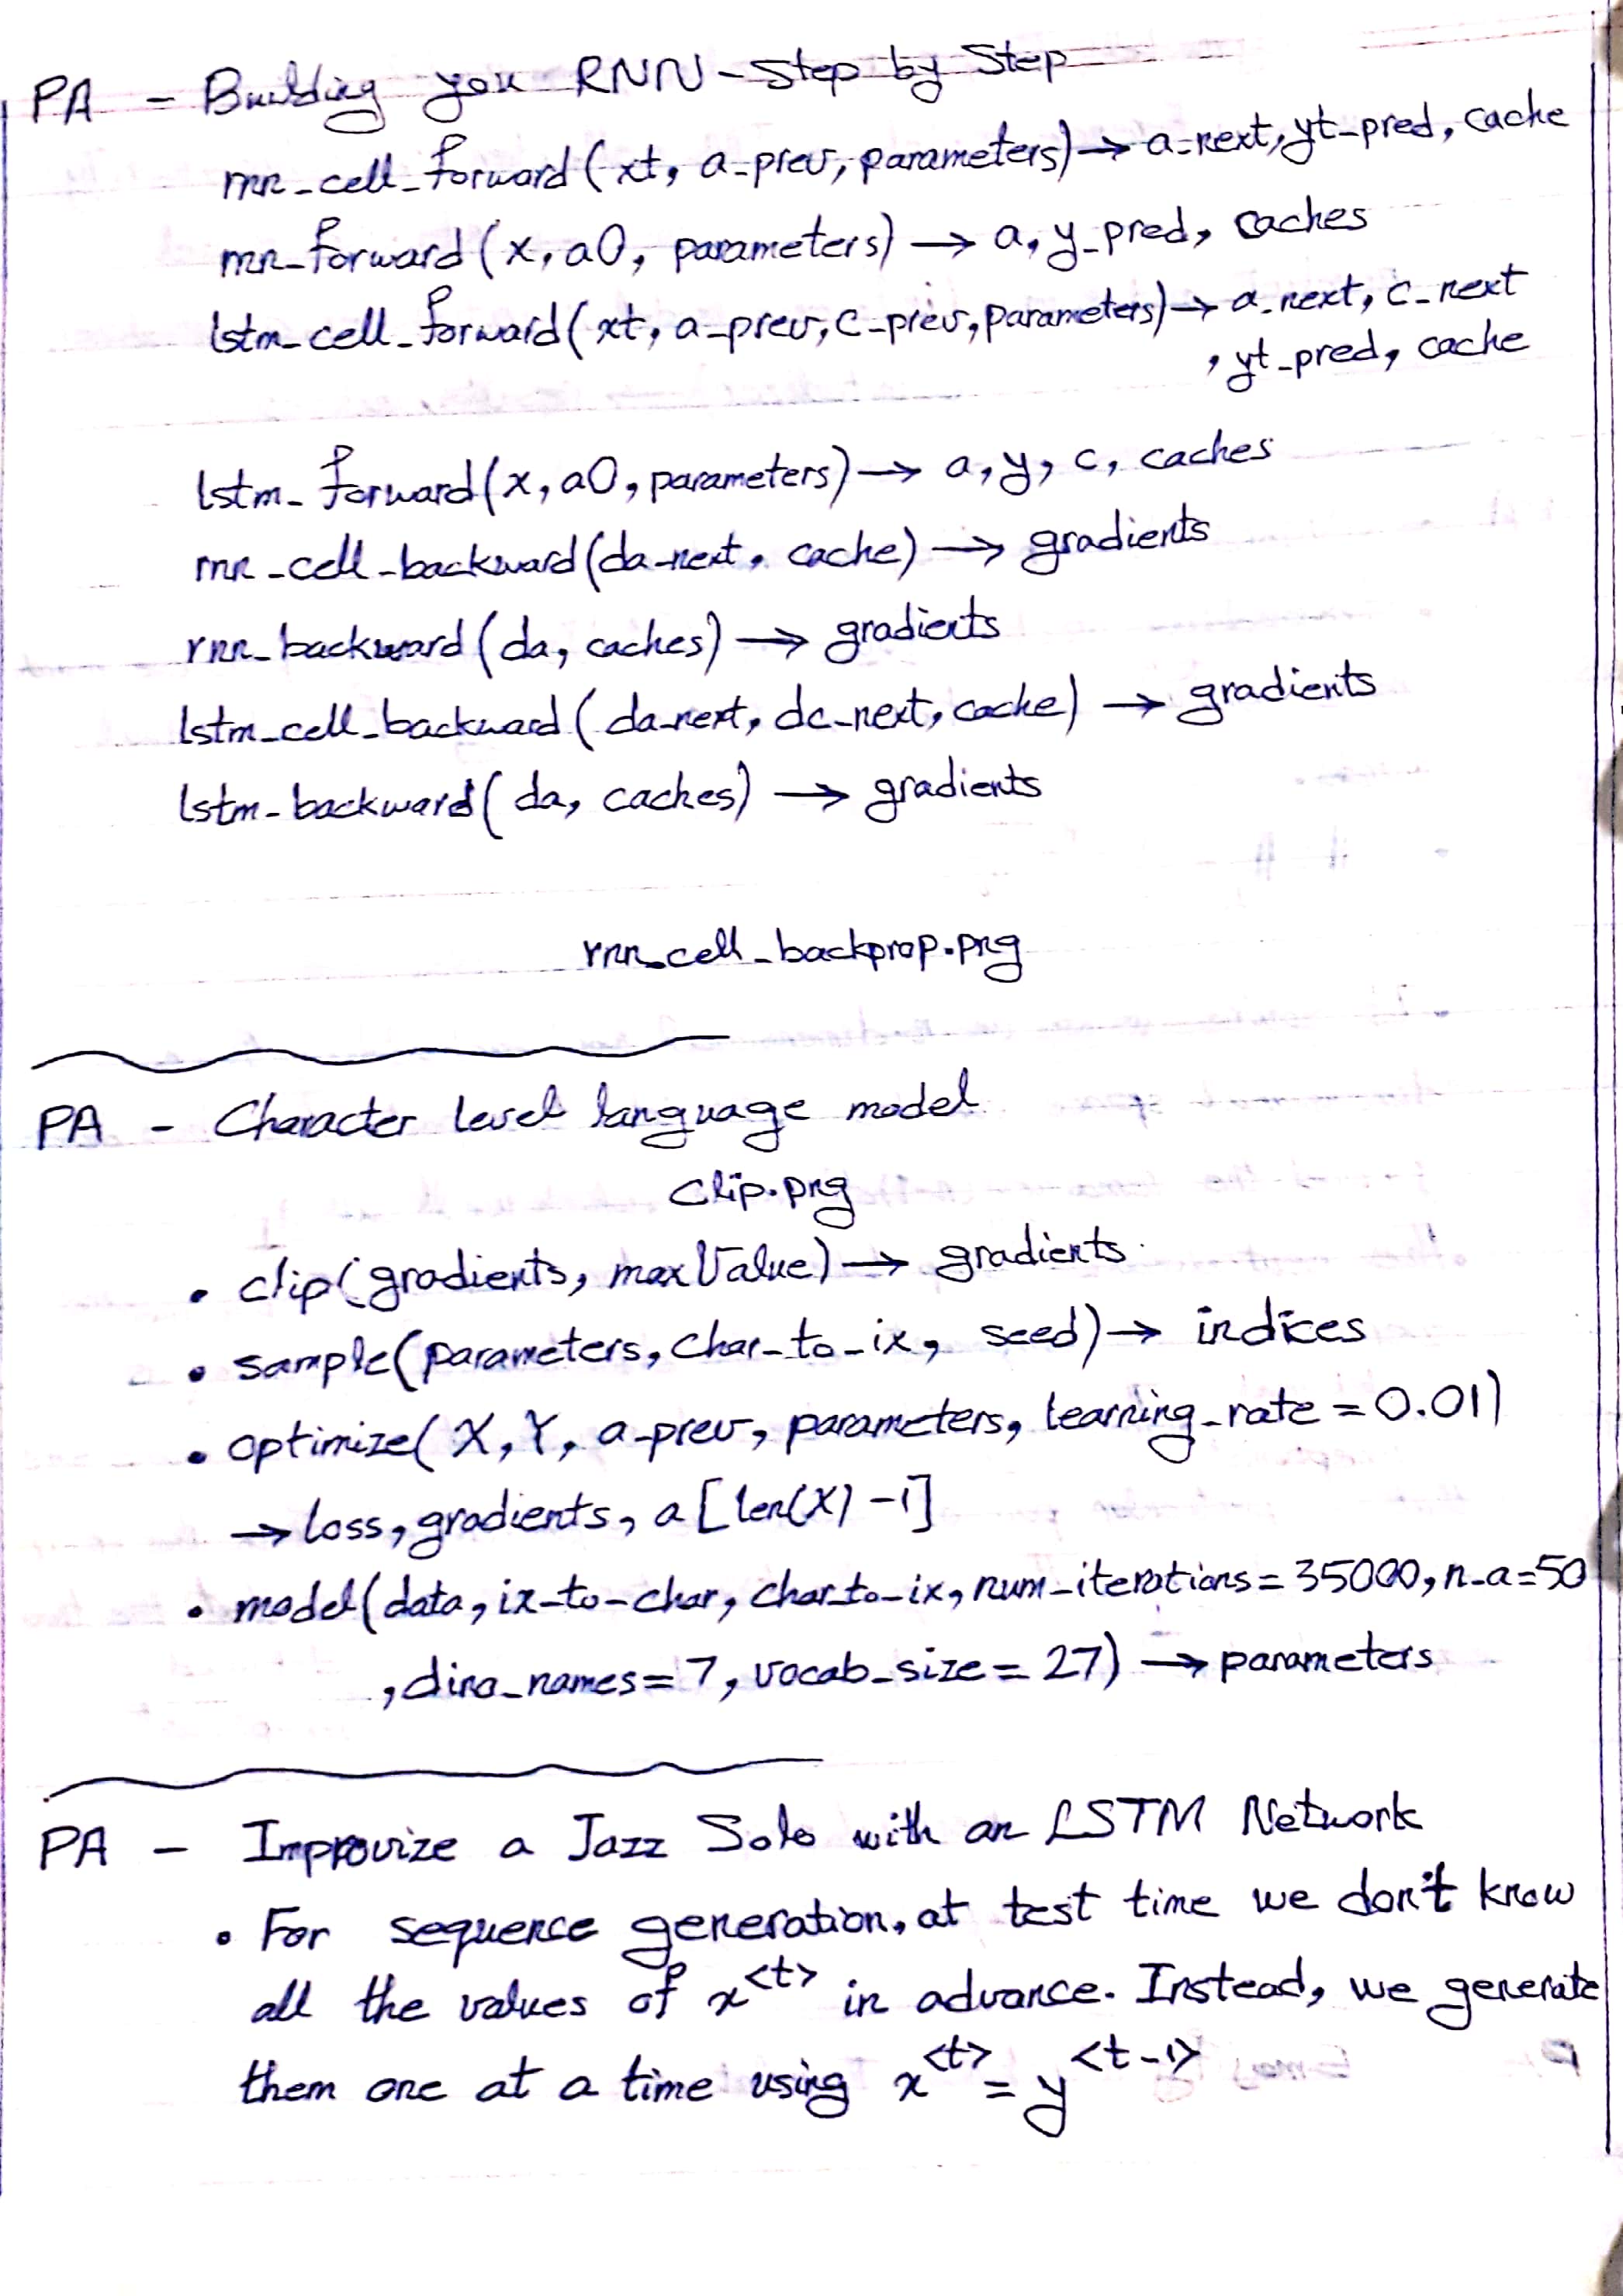 PA - Building you RNN - Step by Step
rnn_cell_forward(xt, a_prev, parameters) → a_next, yt_pred, cache
rnn_forward(x, a0, parameters) → a, y_pred, caches
lstm_cell_forward(xt, a_prev, c_prev, parameters) → a_next, c_next
, yt_pred, cache
lstm_forward(x, a0, parameters) → a, y, c, caches
rnn_cell_backward(da_next, cache) → gradients
rnn_backward(da, caches) → gradients
lstm_cell_backward(da_next, dc_next, cache) → gradients
lstm_backward(da, caches) → gradients
rnn_cell_backprop.png
PA - Character level language model
clip.png
• clip(gradients, maxValue) → gradients
• sample(parameters, char_to_ix, seed) → indices
• optimize(X, Y, a_prev, parameters, learning_rate = 0.01)
→ loss, gradients, a[len(X) -1]
• model(data, ix_to_char, char_to_ix, num_iterations = 35000, n_a=50
, dino_names = 7, vocab_size = 27) → parameters
PA - Improvize a Jazz Solo with an LSTM Network
• For sequence generation, at test time we don't know
all the values of x^<t> in advance. Instead, we generate
them one at a time using x^<t> = y^<t-1>